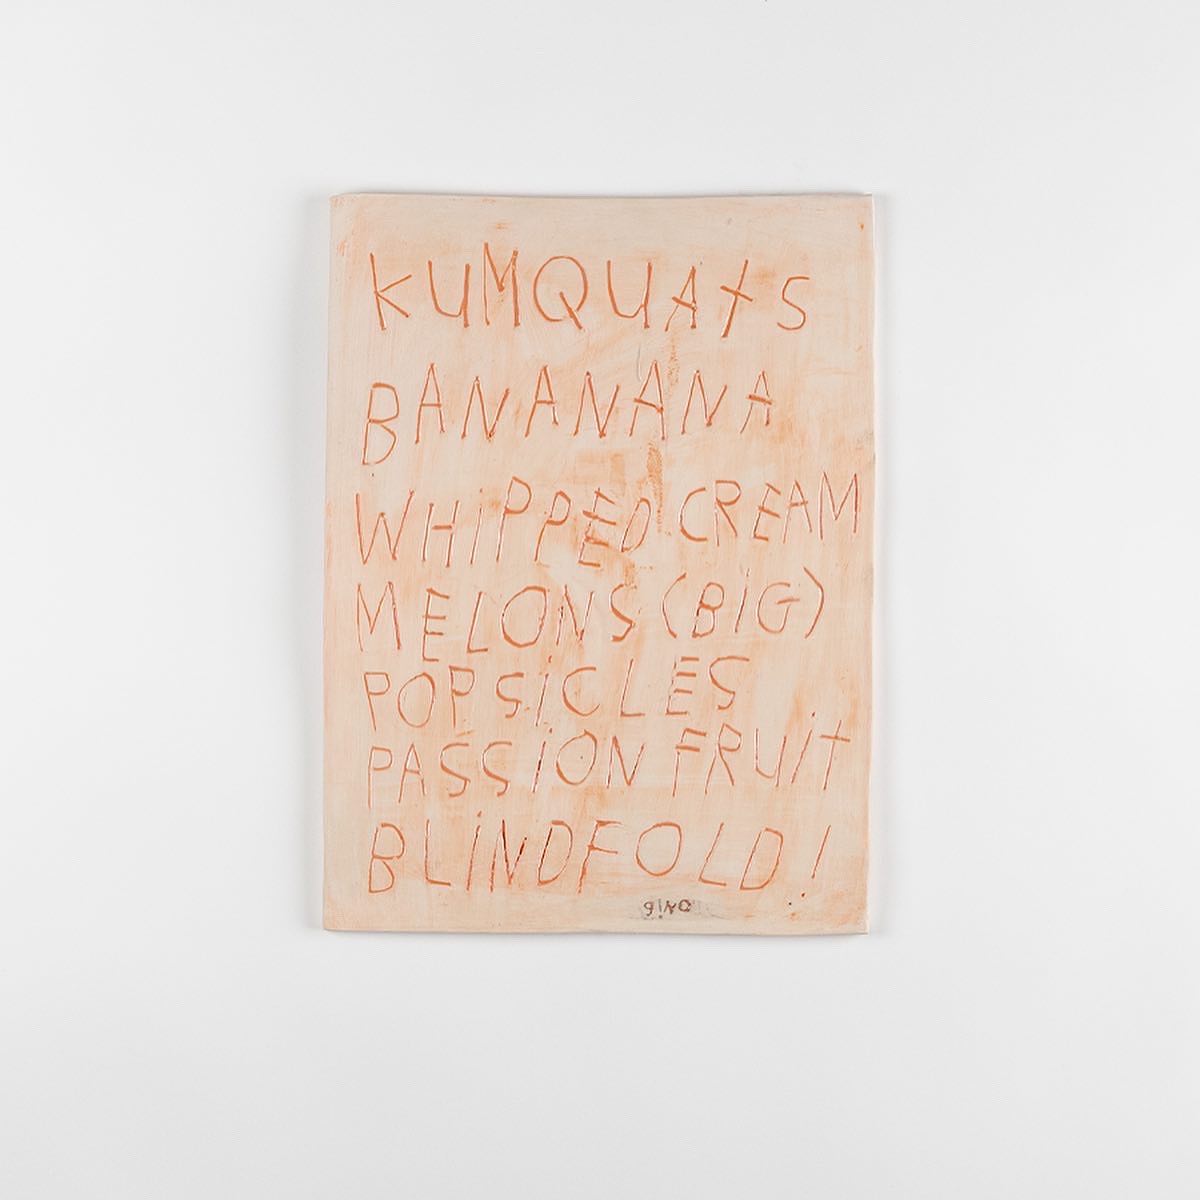 KUMQUAtS
BANANANA
WHiPPED CREAM
MELONS (BiG)
POPSiCLES
PASSiON FRUit
BLiNDFOLD!